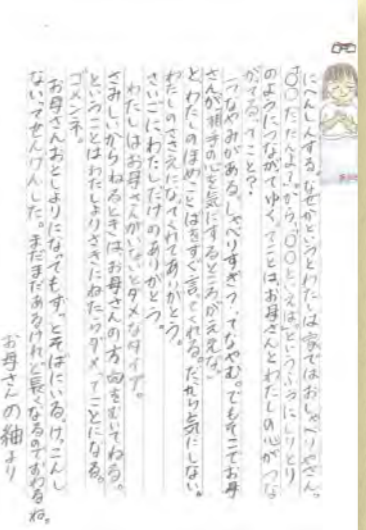 にへんしんする。なぜかというとわたしは家ではおしゃべりやさん。
「○○だったんよ」から、「○○といえば」というふうにしりとり
のようにつながってゆく。ってことは、お母さんとわたしの心がつな
がってるってこと?
一つなやみがある。しゃべりすぎってなやむ。でもそこでお母
さんが「相手の心を気にするところがええな」
と、わたしのほめことばをすぐ言ってくれる。だから気にしない。
わたしのささえになってくれてありがとう。
さいごにわたしだけのありがとう。
わたしはお母さんがいないとダメなタイプ。
さみしいからねるときは、お母さんの方向をむいてねる。
ということはわたしよりさきにねたらダメってことになる。
ゴメンネ。
お母さんおとしよりになってもずっとそばにいる。けっこんし
ないってせんげんした。まだまだあるけれど長くなるのでおわるね。
お母さんの紬より